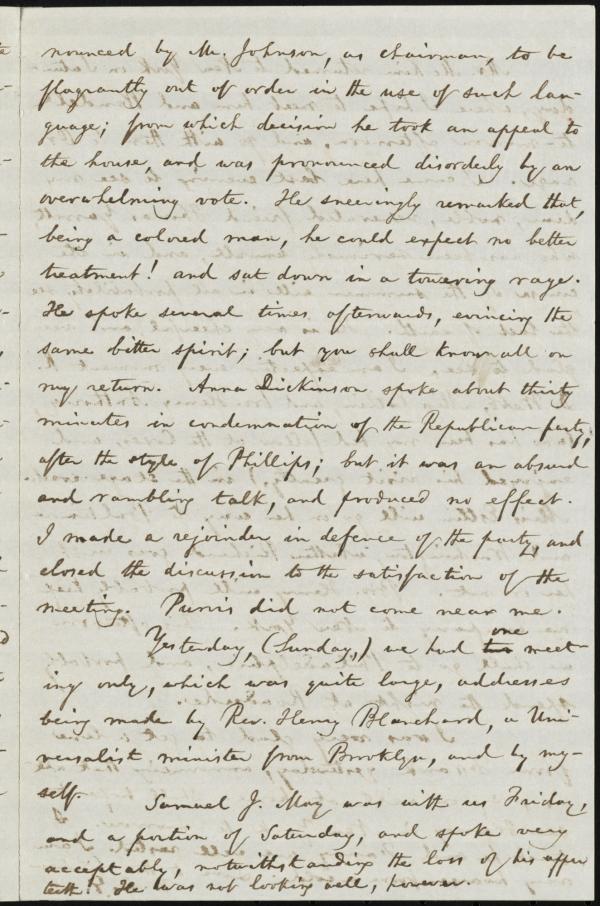 nounced by Mr. Johnson, as chairman, to be
flagrantly out of order in the use of such lan-
guage; from which decision he took an appeal to
the house, and was pronounced disorderly by an
overwhelming vote. He sneeringly remarked that,
being a colored man, he could expect no better
treatment! and sat down in a towering rage.
He spoke several times afterwards, evincing the
same bitter spirit; but you shall know all on
my return. Anna Dickinson spoke about thirty
minutes in condemnation of the Republican party,
after the style of Phillips; but it was an absurd
and rambling talk, and produced no effect.
I made a rejoinder in defence of the party, and
closed the discussion to the satisfaction of the
meeting. Purvis did not come near me.
Yesterday, (Sunday,) we had one meet-
ing only, which was quite large, addresses
being made by Rev. Henry Blanchard, a Uni-
versalist minister from Brooklyn, and by my-
self. Samuel J. May was with us Friday,
and a portion of Saturday, and spoke very
acceptably, notwithstanding the loss of his upper
teeth. He was not looking well, however.